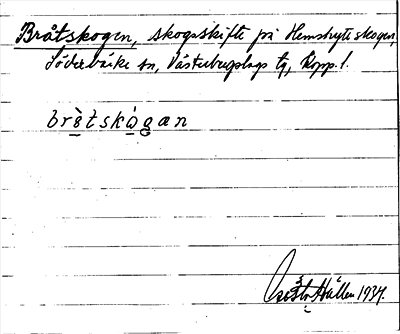 Bråtskogen, skogsskifte på Hemshytteskogen,
Söderbärke sn, Västerbergslags tg, Kopp. l.
brètskògan
Gösta Hallén 1937.